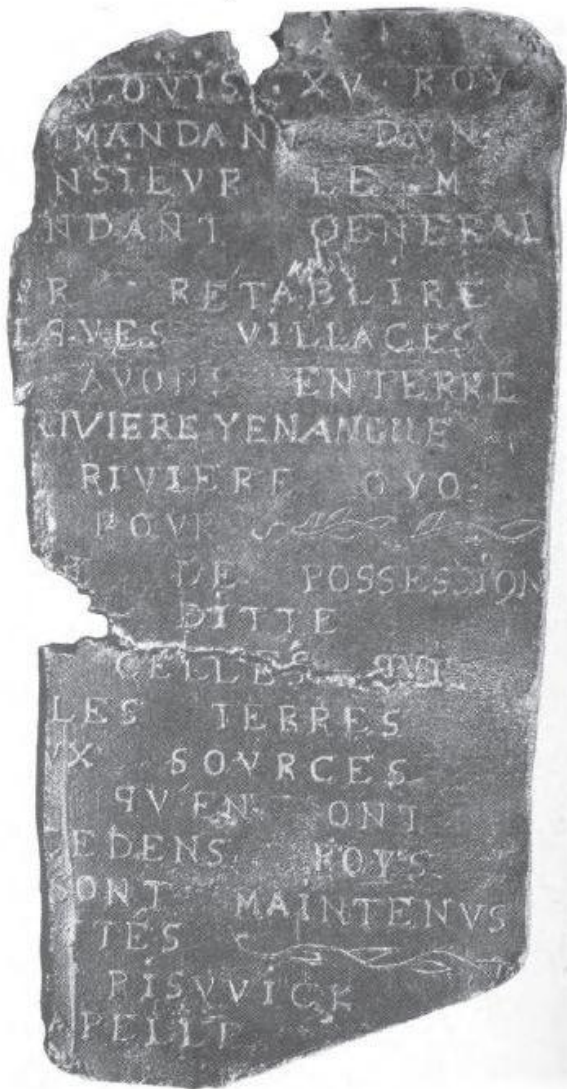 LOVIS · XV · ROY
MANDANT DVN
NSIEVR LE M
NDANT GENERAL
VR RETABLIRE
VILLAGES
AVONS ENTERRE
RIVIERE YENANGUE
RIVIERE OYO ·
POVR
DE POSSESSION
DITTE
CELLES QVI
LES TERRES
VX SOVRCES
QVEN ONT
EDENS ROYS
SONT MAINTENVS
TTES
RISVVICK
APELLE